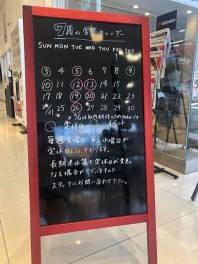 7月の営業カレンダー
SUN MON TUE WED THU FRI SAT
1 2
3 4 5 6 7 8 9
10 11 12 13 14 15 16
17 18 19 20 21 22 23
26 27 28 29 30
定休日
毎週火曜日 第三水曜日が
定休日となっております。
長期連休等で定休日が変更に
なる場合がございますので
スタッフにお問い合わせ下さい。